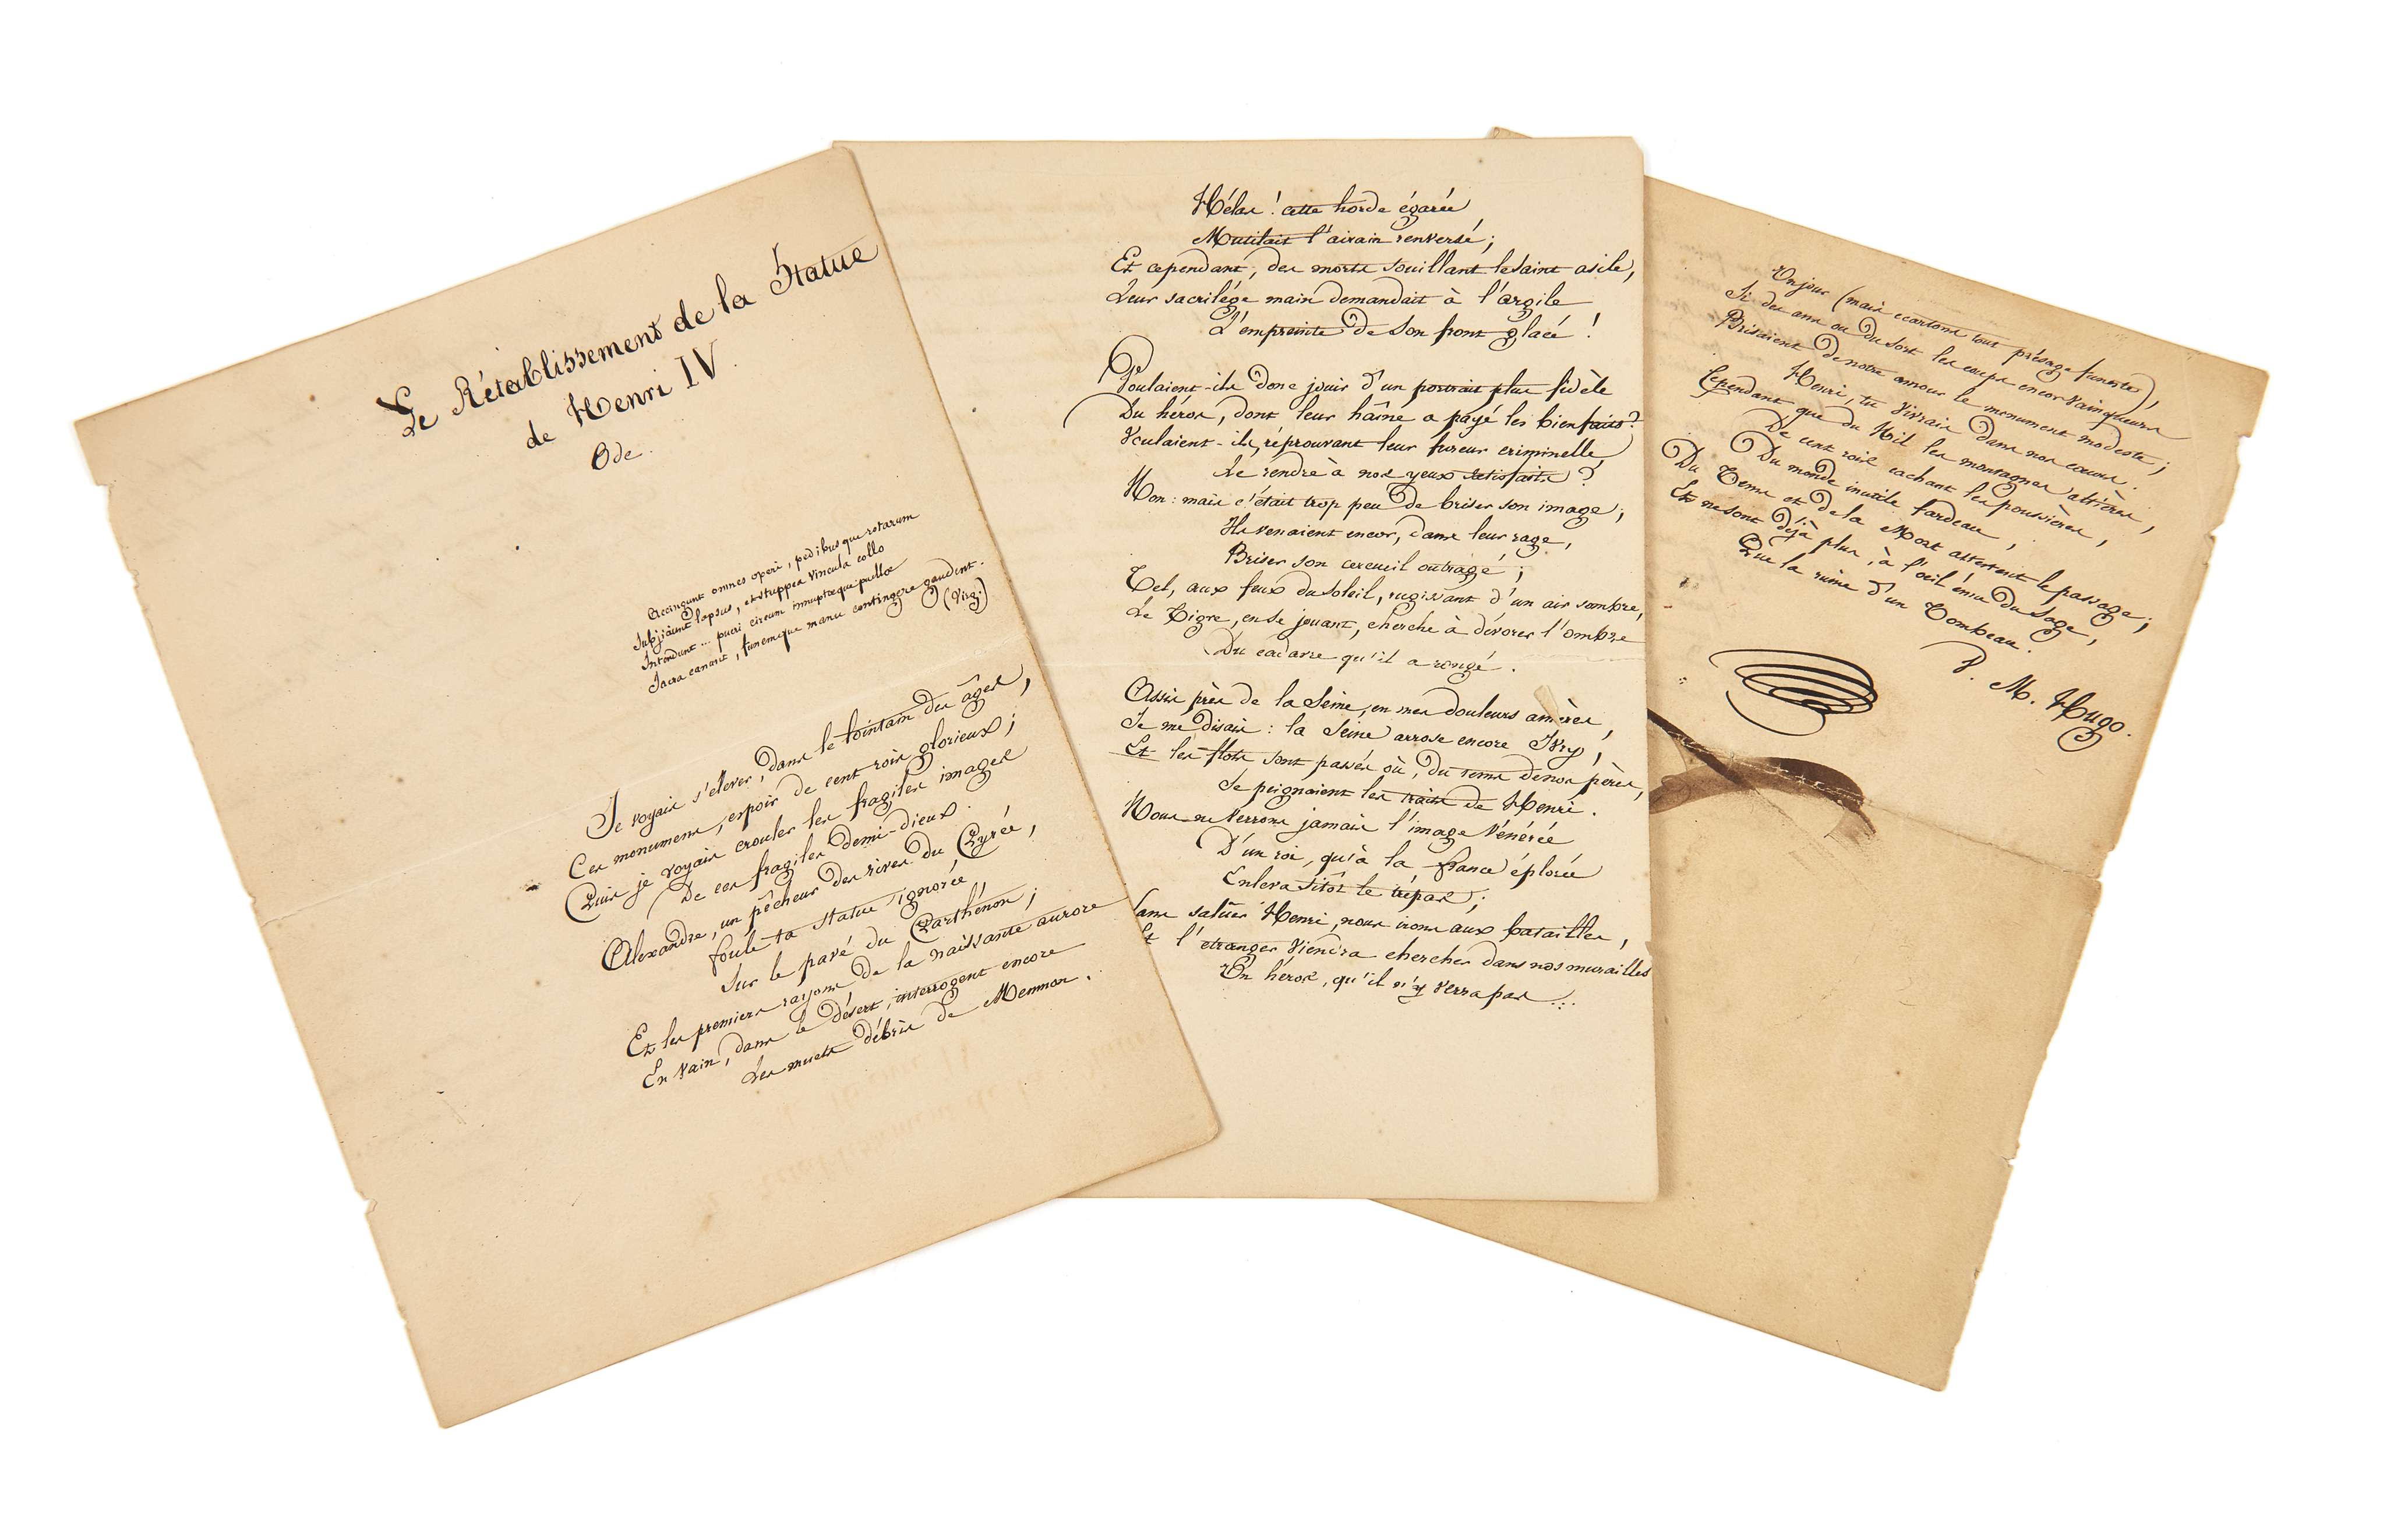 Le Rétablissement de la Statue
de Henri IV.
Ode.
Accingunt omnes operi, pedibusque rotarum
Subjiciunt lapsus, et stuppea vincula collo
Intendunt... pueri circum innuptæque puellæ
Sacra canunt, funemque manu contingere gaudent.
(Virg.)
Je voyais s'élever, dans le lointain des âges,
Ces monumens, espoir de cent rois glorieux;
Puis je voyais crouler les fragiles images
De ces fragiles demi-dieux.
Alexandre, un pêcheur des rives du Pyrée,
foule ta statue ignorée,
Sur le pavé du Parthénon;
Et les premiers rayons de la naissante aurore
En vain, dans le désert, interrogent encore
Les muets débris de Memnon.
Hélas! cette horde égarée
Mutilait l'airain renversé;
Et cependant, des morts souillant le saint asile,
Leur sacrilége main demandait à l'argile
L'empreinte de son front glacé!
Voulaient-ils donc jouir d'un portrait plus fidèle
Du héros, dont leur haîne a payé les bienfaits?
Voulaient-ils, réprouvant leur fureur criminelle
Le rendre à nos yeux satisfaits?
Non: mais c'était trop peu de briser son image;
Ils venaient encor, dans leur rage,
Briser son cercueil outragé;
Tel, aux feux du soleil, rugissant d'un air sombre,
Le Tigre, en se jouant, cherche à dévorer l'ombre
Du cadavre qu'il a rongé.
Assis près de la Seine, en mes douleurs amères,
Je me disais: la Seine arrose encore Ivry,
Et les flots sont passés où, du tems de nos pères,
Se peignaient les traits de Henri.
Nous ne verrons jamais l'image vénérée
D'un roi, qu'à la france éplorée
Enleva sitôt le trépas;
Sans saluer Henri, nous irons aux batailles,
Et l'etranger viendra chercher dans nos murailles
Un héros, qu'il n'y verra pas...
Un jour (mais ecartons tout présage funeste),
Si des ans ou du sort les coups encor vainqueurs
Brisaient de notre amour le monument modeste;
Henri, tu vivrais dans nos cœurs.
Cependant que du Nil les montagnes altières,
De cent rois cachant les poussières,
Du monde inutile fardeau,
Du Tems et de la Mort attestent le passage;
Et ne sont déjà plus, à l'œil ému du Sage,
Que la ruine d'un Tombeau.
V. M. Hugo.